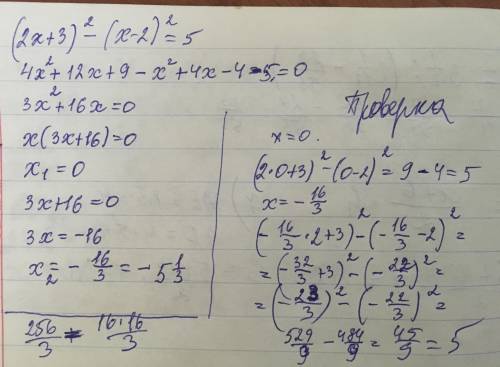 (2x+3)² - (x-2)² = 5
4x² + 12x + 9 - x² + 4x - 4 - 5 = 0
3x² + 16x = 0
x(3x+16) = 0
x₁ = 0
3x+16 = 0
3x = -16
x₂ = - 16/3 = -5 1/3
256/3 = 16·16/3
Проверка
x = 0.
(2·0+3)² - (0-2)² = 9 - 4 = 5
x = - 16/3
(- 16/3 · 2 + 3)² - (- 16/3 - 2)² =
= (- 32/3 + 3)² - (- 22/3)² =
= (- 23/3)² - (- 22/3)² =
529/9 - 484/9 = 45/9 = 5